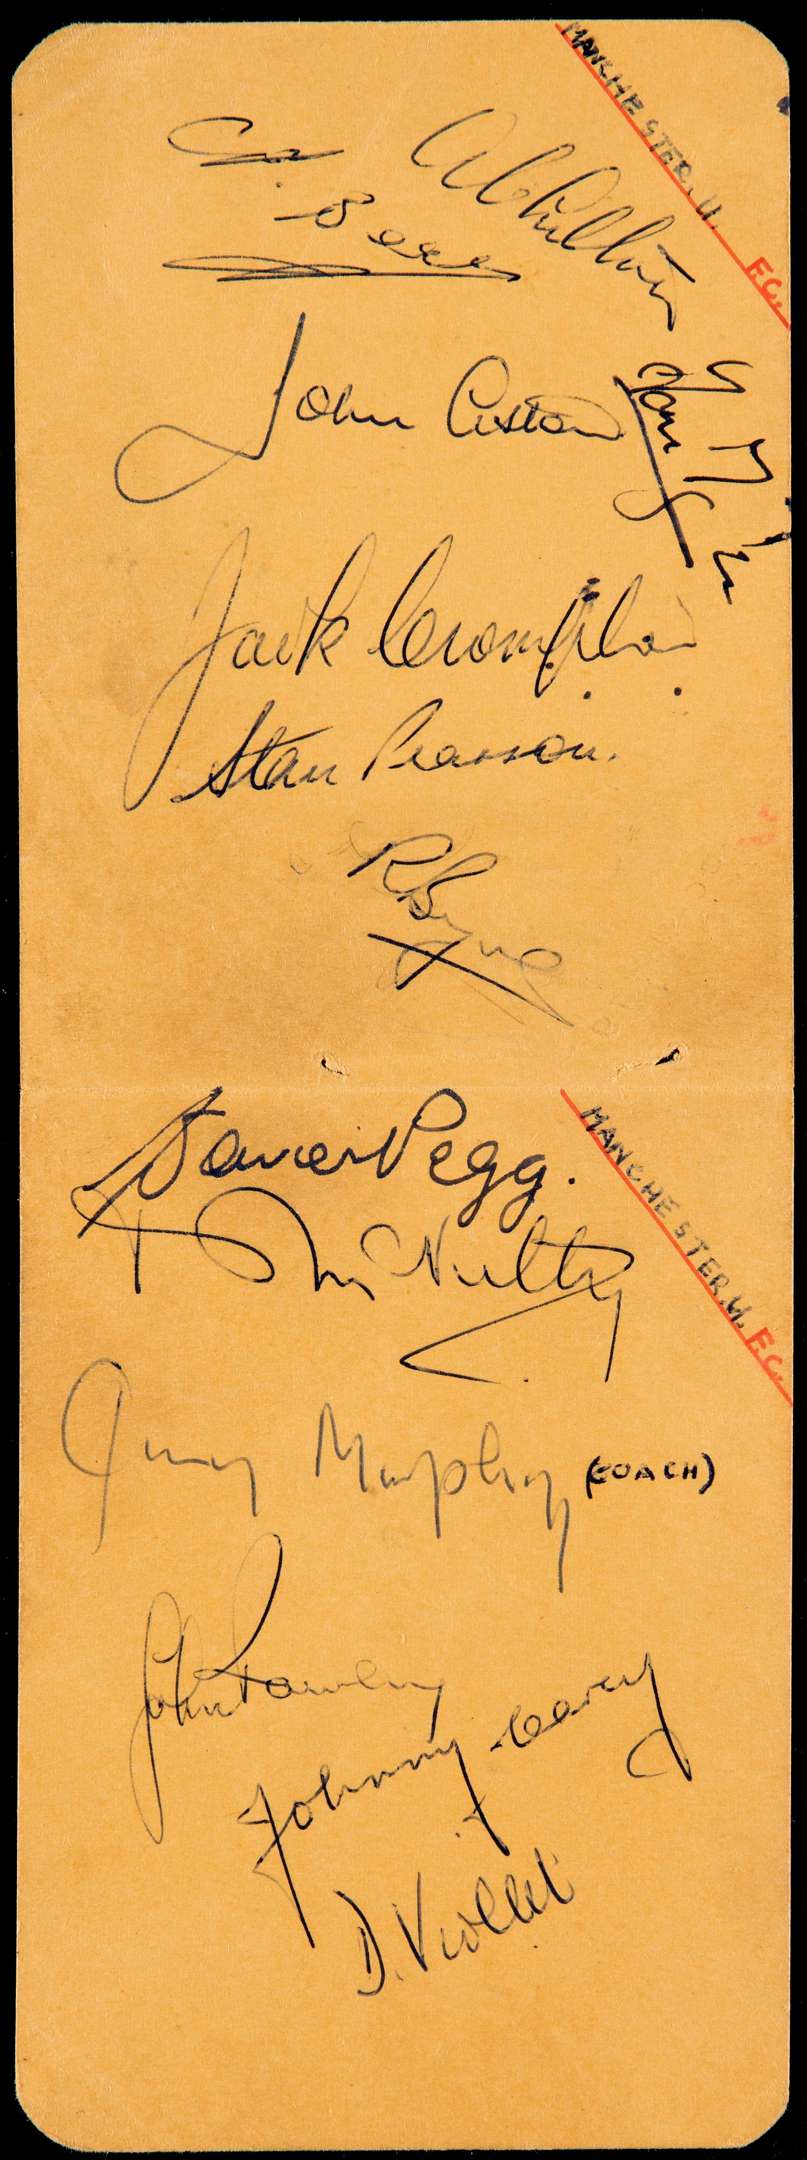 MANCHESTER. U. F.C.
A Chilton
John Aston
Jack Crompton
Stan Pearson.
R Byrne
MANCHESTER. U. F.C.
David Pegg.
T McNulty
Jimmy Murphy (COACH)
John Rowley
Johnny Carey
D. Viollet